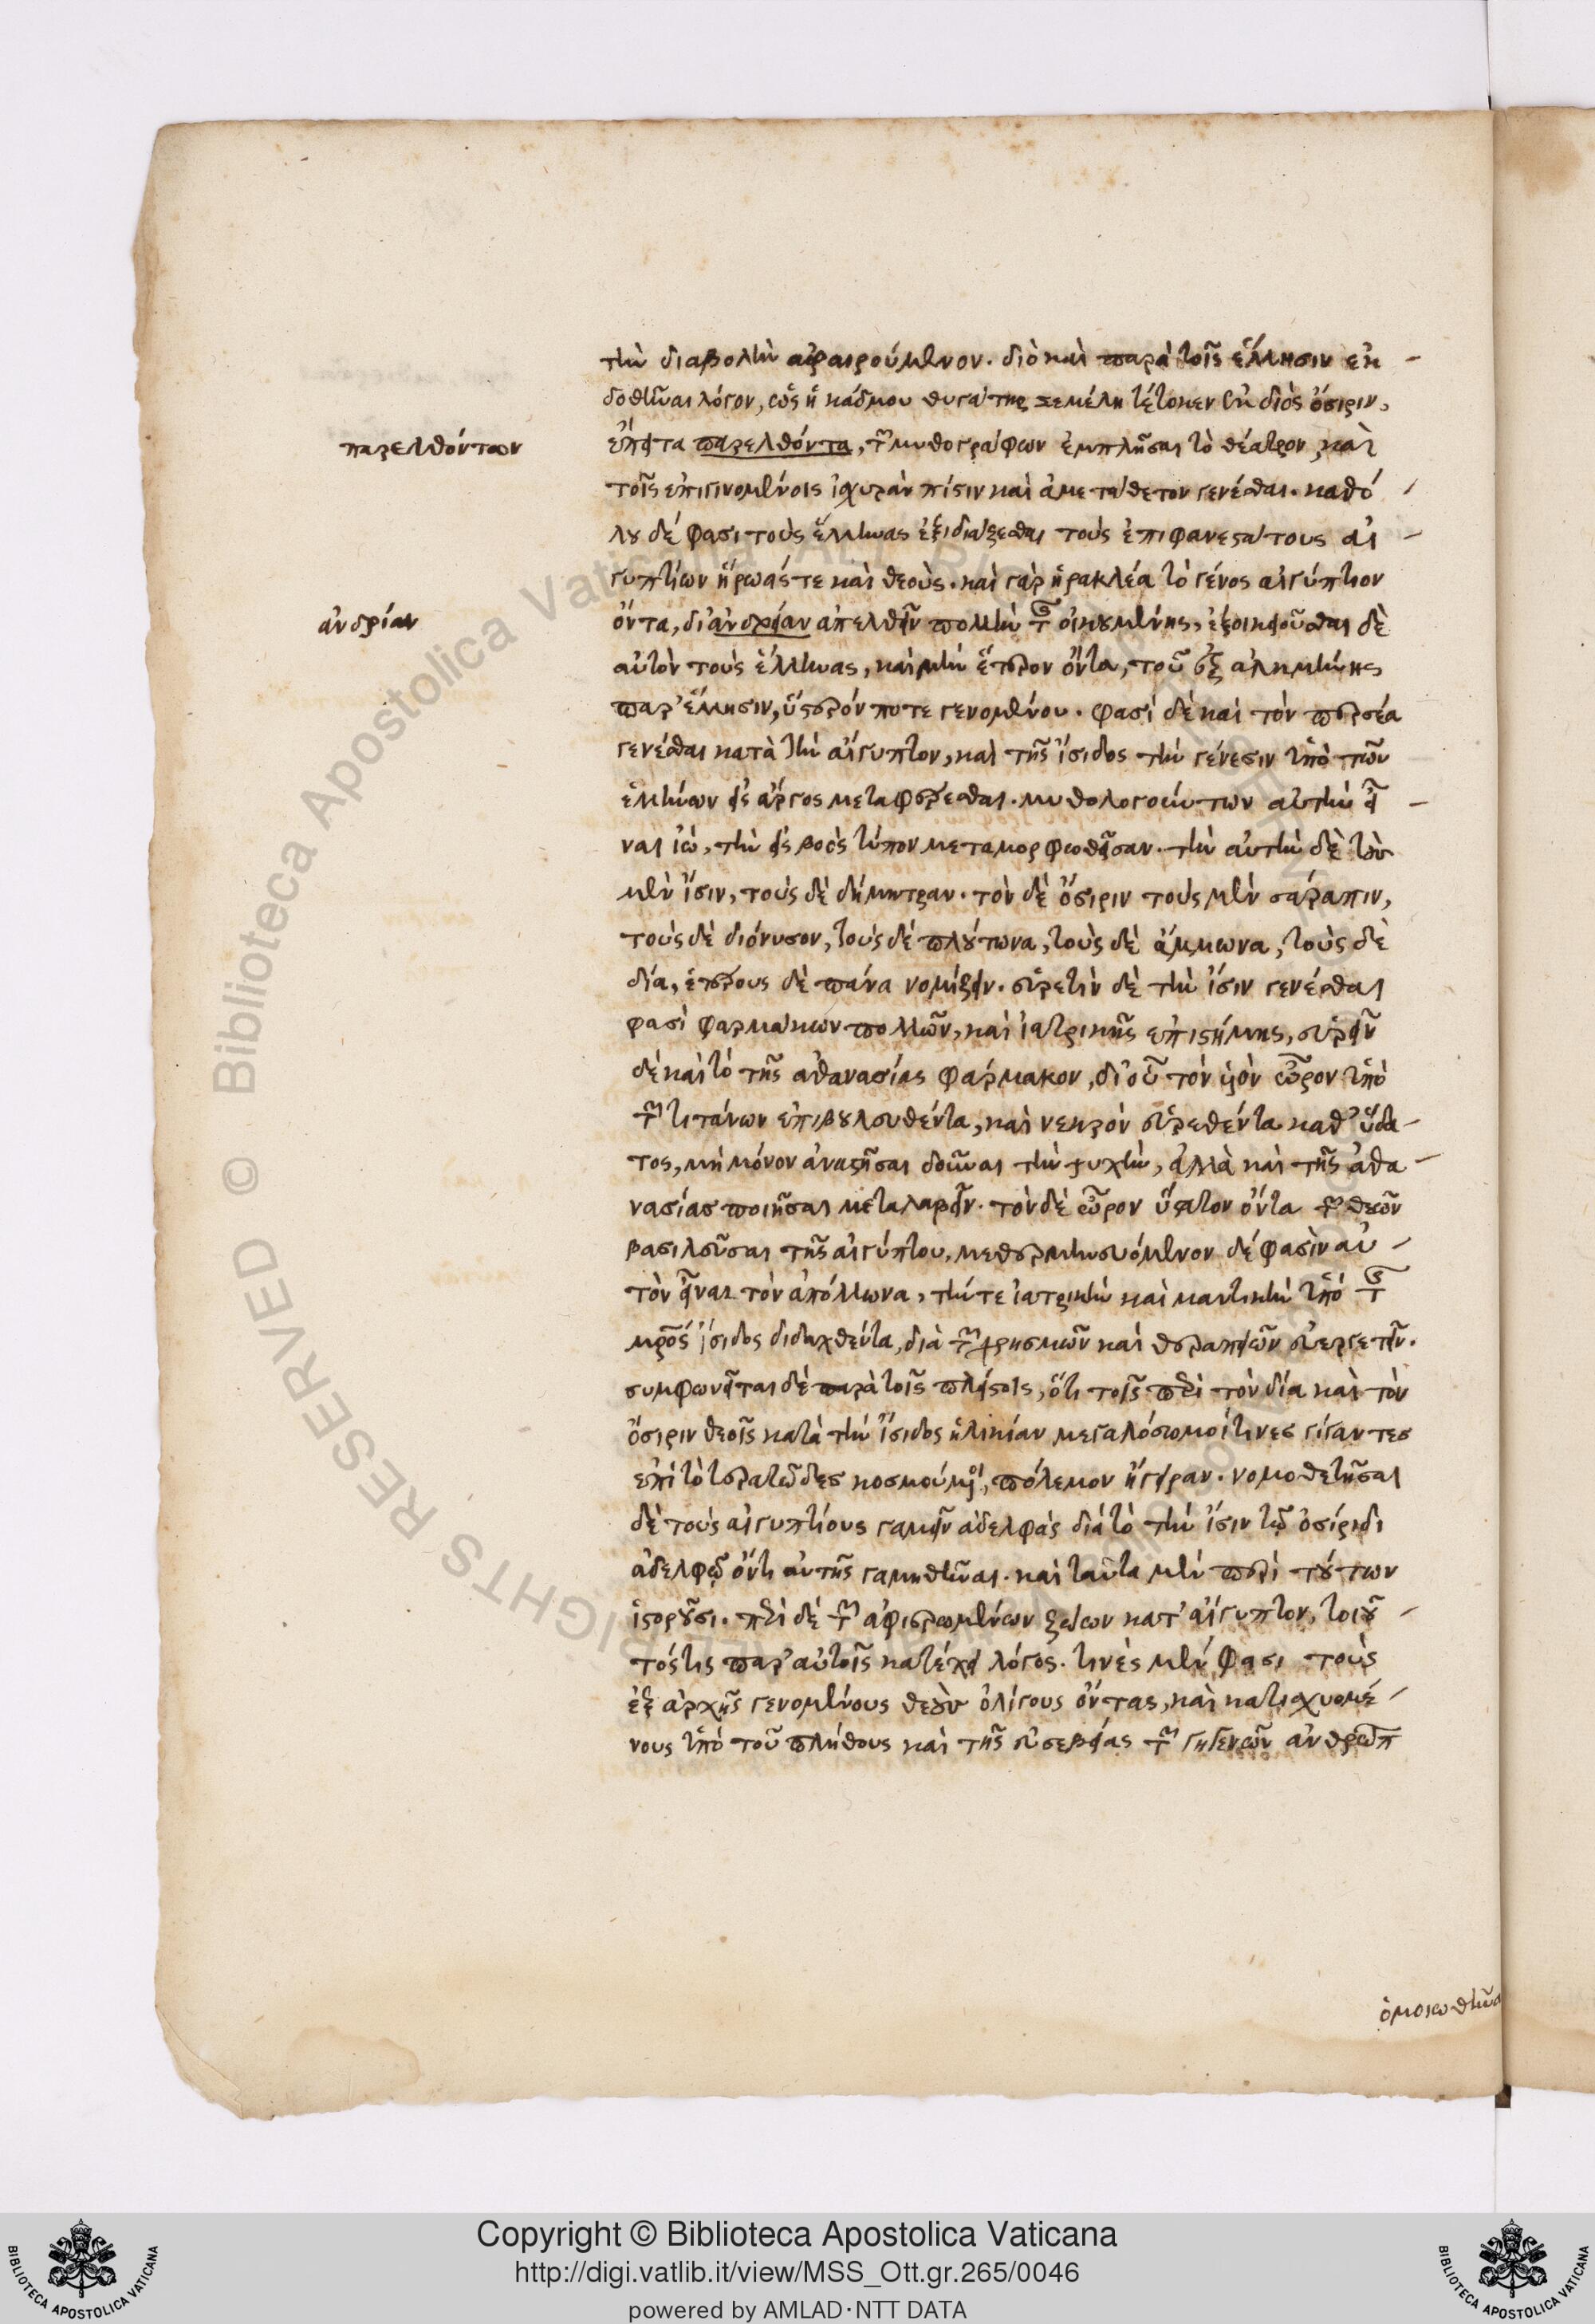 τὴν διαβολὴν ἀφαιρούμενον. διὸ καὶ παρὰ τοῖς ἕλλησιν ἐκ
δοθῆναι λόγον, ὡς ἡ κάδμου θυγάτηρ σεμέλη τέτοκεν ἐκ διὸς ὄσιριν,
παρελθόντων
ἔπειτα παρελθόντα, τῶν μυθογράφων ἐμπλῆσαι τὸ θέατρον, καὶ
τοῖς ἐπιγινομένοις ἰσχυρὰν πίστιν καὶ ἀμετάθετον γενέσθαι. καθό
λου δέ φασι τοὺς ἕλληνας ἐξιδιάζεσθαι τοὺς ἐπιφανεστάτους αἰ
γυπτίων ἥρωάς τε καὶ θεούς. καὶ γὰρ ἡρακλέα τὸ γένος αἰγύπτιον
ἀνδρίαν
ὄντα, δι' ἀνδρείαν ἀπελθεῖν πολλὴν τῆς οἰκουμένης, ἐξοικειοῦσθαι δὲ
αὐτὸν τοὺς ἕλληνας, καὶ μὴν ἕτερον ὄντα, τοῦ ἐξ ἀλκμήνης
παρ' ἕλλησιν, ὕστερόν ποτε γενομένου. φασὶ δὲ καὶ τὸν περσέα
γενέσθαι κατὰ τὴν αἴγυπτον, καὶ τῆς ἴσιδος τὴν γένεσιν ὑπὸ τῶν
ἑλλήνων εἰς ἄργος μεταφέρεσθαι. μυθολογούντων αὐτὴν εἶ
ναι ἰὼ, τὴν εἰς βοὸς τύπον μεταμορφωθεῖσαν. τὴν αὐτὴν δὲ τοὺς
μὲν ἴσιν, τοὺς δὲ δήμητραν. τὸν δὲ ὄσιριν τοὺς μὲν σάραπιν,
τοὺς δὲ διόνυσον, τοὺς δὲ πλούτωνα, τοὺς δὲ ἄμμωνα, τοὺς δὲ
δία, ἑτέρους δὲ πάνα νομίζειν. εὑρετὶν δὲ τὴν ἴσιν γενέσθαι
φασὶ φαρμάκων πολλῶν, καὶ ἰατρικῆς ἐπιστήμης, εὑρεῖν
δὲ καὶ τὸ τῆς ἀθανασίας φάρμακον, δι' οὗ τὸν υἱὸν ὧρον ὑπὸ
τῶν τιτάνων ἐπιβουλευθέντα, καὶ νεκρὸν εὑρεθέντα καθ' ὕδα
τος, μὴ μόνον ἀναστῆσαι δοῦναι τὴν ψυχὴν, ἀλλὰ καὶ τῆς ἀθα
νασίας ποιῆσαι μεταλαβεῖν. τὸν δὲ ὧρον ὕστατον ὄντα τῶν θεῶν
βασιλεῦσαι τῆς αἰγύπτου, μεθερμηνευόμενον δέ φασὶν αὐ
τὸν εἶναι τὸν ἀπόλλωνα, τήν τε ἰατρικὴν καὶ μαντικὴν ὑπό τῆς
μητρὸς ἴσιδος διδαχθέντα, διὰ τῶν χρησμῶν καὶ θεραπειῶν εὐεργετεῖν.
συμφωνεῖται δὲ παρὰ τοῖς πλείστοις, ὅτι τοῖς περὶ τὸν δία καὶ τὸν
ὄσιριν θεοῖς κατὰ τὴν ἴσιδος ἡλικίαν μεγαλόσωμοί τινες γίγαντες
ἐπὶ τὸ τερατῶδες κοσμούμενοι, πόλεμον ἤγειραν. νομοθετῆσαι
δὲ τοὺς αἰγυπτίους γαμεῖν ἀδελφὰς διὰ τὸ τὴν ἴσιν τῷ ὀσίριδι
ἀδελφῷ ὄντι αὐτῆς γαμηθῆναι. καὶ ταῦτα μὲν περὶ τούτων
ἱστοροῦσι. περὶ δὲ τῶν ἀφιερωμένων ζώων κατ' αἴγυπτον, τοιοῦ
τός τις παρ' αὐτοῖς κατέχει λόγος. τινὲς μέν φασι τοὺς
ἐξ ἀρχῆς γενομένους θεοὺς ὀλίγους ὄντας, καὶ κατισχυομέ
νους ὑπὸ τοῦ πλήθους καὶ τῆς εὐσεβείας τῶν γηγενῶν ἀνθρώπ
ὁμοιωθῆναι
Copyright © Biblioteca Apostolica Vaticana
http://digi.vatlib.it/view/MSS_Ott.gr.265/0046
powered by AMLAD·NTT DATA